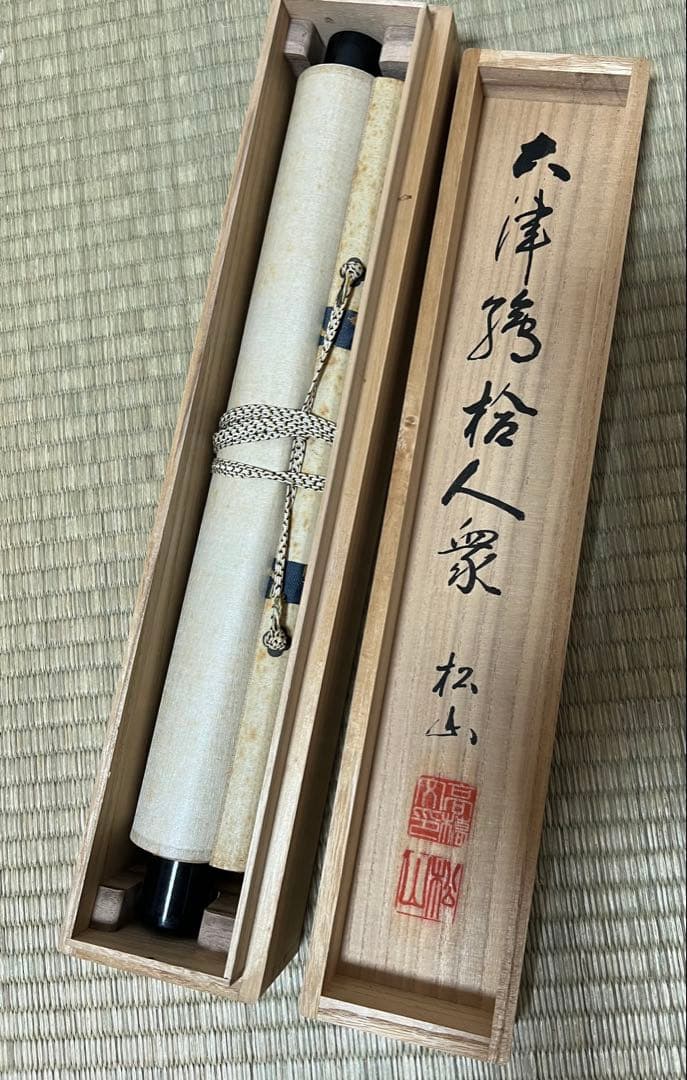 大津繪拾人衆
松山
松山